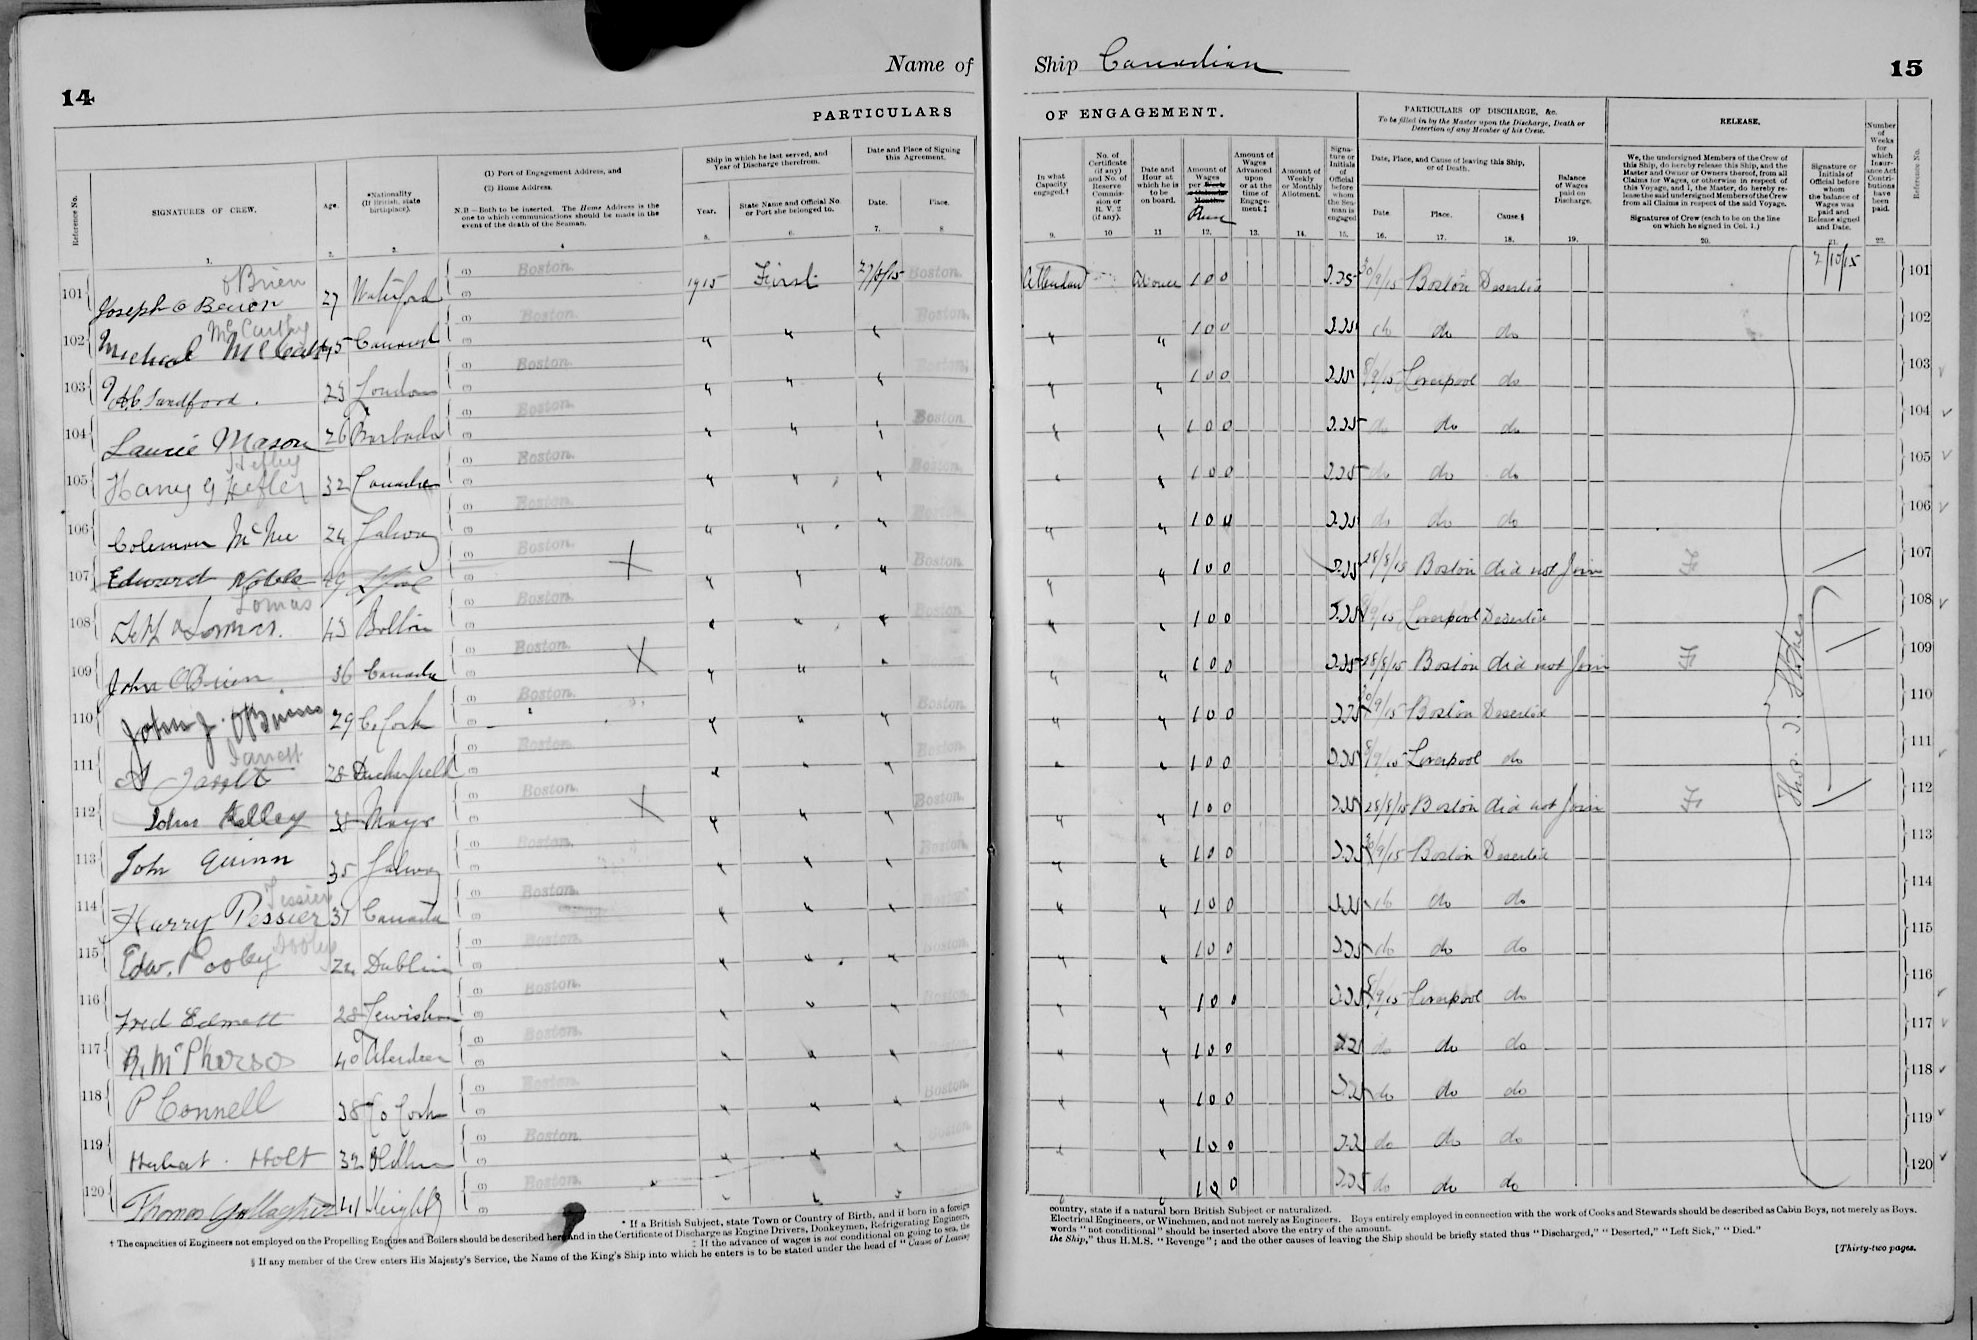 14
Name of
Ship Canadian
15
PARTICULARS
OF ENGAGEMENT.
Reference No.
SIGNATURES OF CREW.
Age.
*Nationality (If British, state birthplace).
(1) Port of Engagement Address, and
(2) Home Address.
N.B—Both to be inserted. The Home Address is the one to which communications should be made in the event of the death of the Seaman.
Ship in which he last served, and Year of Discharge therefrom.
Year.
State Name and Official No. or Port she belonged to.
Date and Place of Signing this Agreement.
Date.
Place.
In what Capacity engaged.†
No. of Certificate (if any) and No. of Reserve Commission or R. V. 2 (if any).
Date and Hour at which he is to be on board.
Amount of Wages per Run
Amount of Wages Advanced upon or at the time of Engagement.‡
Amount of Weekly or Monthly Allotment.
Signature or Initials of Official before whom the Seaman is engaged
PARTICULARS OF DISCHARGE, &c.
To be filled in by the Master upon the Discharge, Death or Desertion of any Member of his Crew.
Date, Place, and Cause of leaving this Ship, or of Death.
Date.
Place.
Cause.§
Balance of Wages paid on Discharge.
RELEASE.
We, the undersigned Members of the Crew of this Ship, do hereby release this Ship, and the Master and Owner or Owners thereof, from all Claims for Wages, or otherwise in respect of this Voyage, and I, the Master, do hereby release the said undersigned Members of the Crew from all Claims in respect of the said Voyage.
Signatures of Crew (each to be on the line on which he signed in Col. 1.)
Signature or Initials of Official before whom the balance of Wages was paid and Release signed and Date.
Number of Weeks for which Insurance Act Contributions have been paid.
Reference No.
1. 2. 3. 4 5. 6. 7. 8 9. 10 11. 12. 13. 14. 15. 16. 17. 18. 19. 20. 21. 22.
O'Brien
101 Joseph O 27 Waterford Boston. 1915 First 27/8/15 Boston. Attendant 1 0 0 30/9/15 Boston Deserted 2/10/15 101
McCarthy
102 Michael 45 Boston. " " " Boston. " " 1 0 0 do do do 102
103 Sandford. 23 London Boston. " " " Boston. " " 1 0 0 8/9/15 Liverpool do 103
104 Laurie Mason 26 Barbados Boston. " " " Boston. " " 1 0 0 do do do 104
Hefley
105 Harry G Hefler 32 Canada Boston. " " " Boston. " " 1 0 0 do do do 105
106 Coleman McNee 24 Galway Boston. " " " Boston. " " 1 0 0 do do do 106
107 Edward Noble 49 L'pool Boston. X " " " Boston. " " 1 0 0 28/8/15 Boston did not Join 107
Lomas
108 Lomas. 43 Bolton Boston. " " " Boston. " " 1 0 0 8/9/15 Liverpool Deserted 108
109 John O'Brien 36 Canada Boston. X " " " Boston. " " 1 0 0 28/8/15 Boston did not Join 109
110 John J. O'Brien 29 C. Cork Boston. " " " Boston. " " 1 0 0 30/9/15 Boston Deserted 110
Jarrett
111 28 Boston. " " " Boston. " " 1 0 0 8/9/15 Liverpool do 111
112 John Kelley 38 Mayo Boston. X " " " Boston. " " 1 0 0 28/8/15 Boston did not Join 112
113 John Quinn 35 Galway Boston. " " " Boston. " " 1 0 0 30/9/15 Boston Deserted 113
Tessier
114 Harry Tessier 31 Canada Boston. " " " Boston. " " 1 0 0 do do do 114
Dooley
115 Edw. Dooley 24 Dublin Boston. " " " Boston. " " 1 0 0 do do do 115
116 Fred Edmett 28 Lewisham Boston. " " " Boston. " " 1 0 0 8/9/15 Liverpool do 116
117 R. McPherson 40 Aberdeen Boston. " " " Boston. " " 1 0 0 do do do 117
118 P Connell 38 Co Cork Boston. " " " Boston. " " 1 0 0 do do do 118
119 Herbert Holt 32 Oldham Boston. " " " Boston. " " 1 0 0 do do do 119
120 Thomas Gallagher 41 Keighly Boston. " " " " " 1 0 0 do do do 120
* If a British Subject, state Town or Country of Birth, and if born in a foreign country, state if a natural born British Subject or naturalized.
† The capacities of Engineers not employed on the Propelling Engines and Boilers should be described here and in the Certificate of Discharge as Engine Drivers, Donkeymen, Refrigerating Engineers, Electrical Engineers, or Winchmen, and not merely as Engineers. Boys entirely employed in connection with the work of Cooks and Stewards should be described as Cabin Boys, not merely as Boys.
‡ If the advance of wages is not conditional on going to sea, the words "not conditional" should be inserted above the entry of the amount.
§ If any member of the Crew enters His Majesty's Service, the Name of the King's Ship into which he enters is to be stated under the head of "Cause of Leaving the Ship," thus H.M.S. "Revenge"; and the other causes of leaving the Ship should be briefly stated thus "Discharged," "Deserted," "Left Sick," "Died."
[Thirty-two pages.